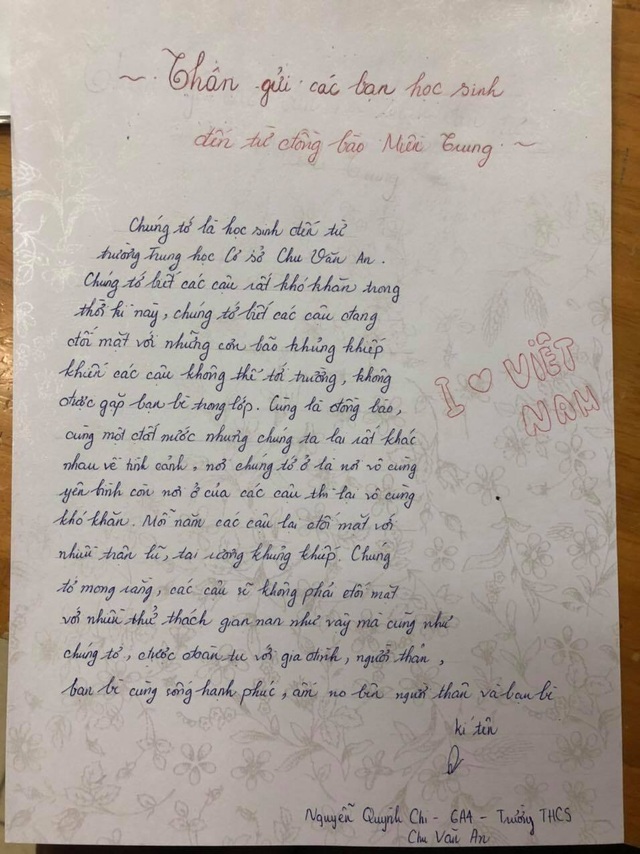 ~ Thân gửi các bạn học sinh
đến từ đồng bào Miền Trung ~
Chúng tớ là học sinh đến từ
trường Trung học Cơ sở Chu Văn An.
Chúng tớ biết các cậu rất khó khăn trong
thời kì này, chúng tớ biết các cậu đang
đối mặt với những cơn bão khủng khiếp
khiến các cậu không thể tới trường, không
được gặp bạn bè trong lớp. Cùng là đồng bào,
cùng một đất nước nhưng chúng ta lại rất khác
nhau về tình cảnh, nơi chúng tớ ở là nơi vô cùng
yên bình còn nơi ở của các cậu thì lại vô cùng
khó khăn. Mỗi năm các cậu lại đối mặt với
nhiều trận lũ, tai ương khủng khiếp. Chúng
tớ mong rằng, các cậu sẽ không phải đối mặt
với nhiều thử thách gian nan như vậy mà cũng như
chúng tớ, được đoàn tụ với gia đình, người thân,
bạn bè cùng sống hạnh phúc, ấm no bên người thân và bạn bè
I ♡ VIỆT
NAM
kí tên
Nguyễn Quỳnh Chi - 6A4 - Trường THCS
Chu Văn An